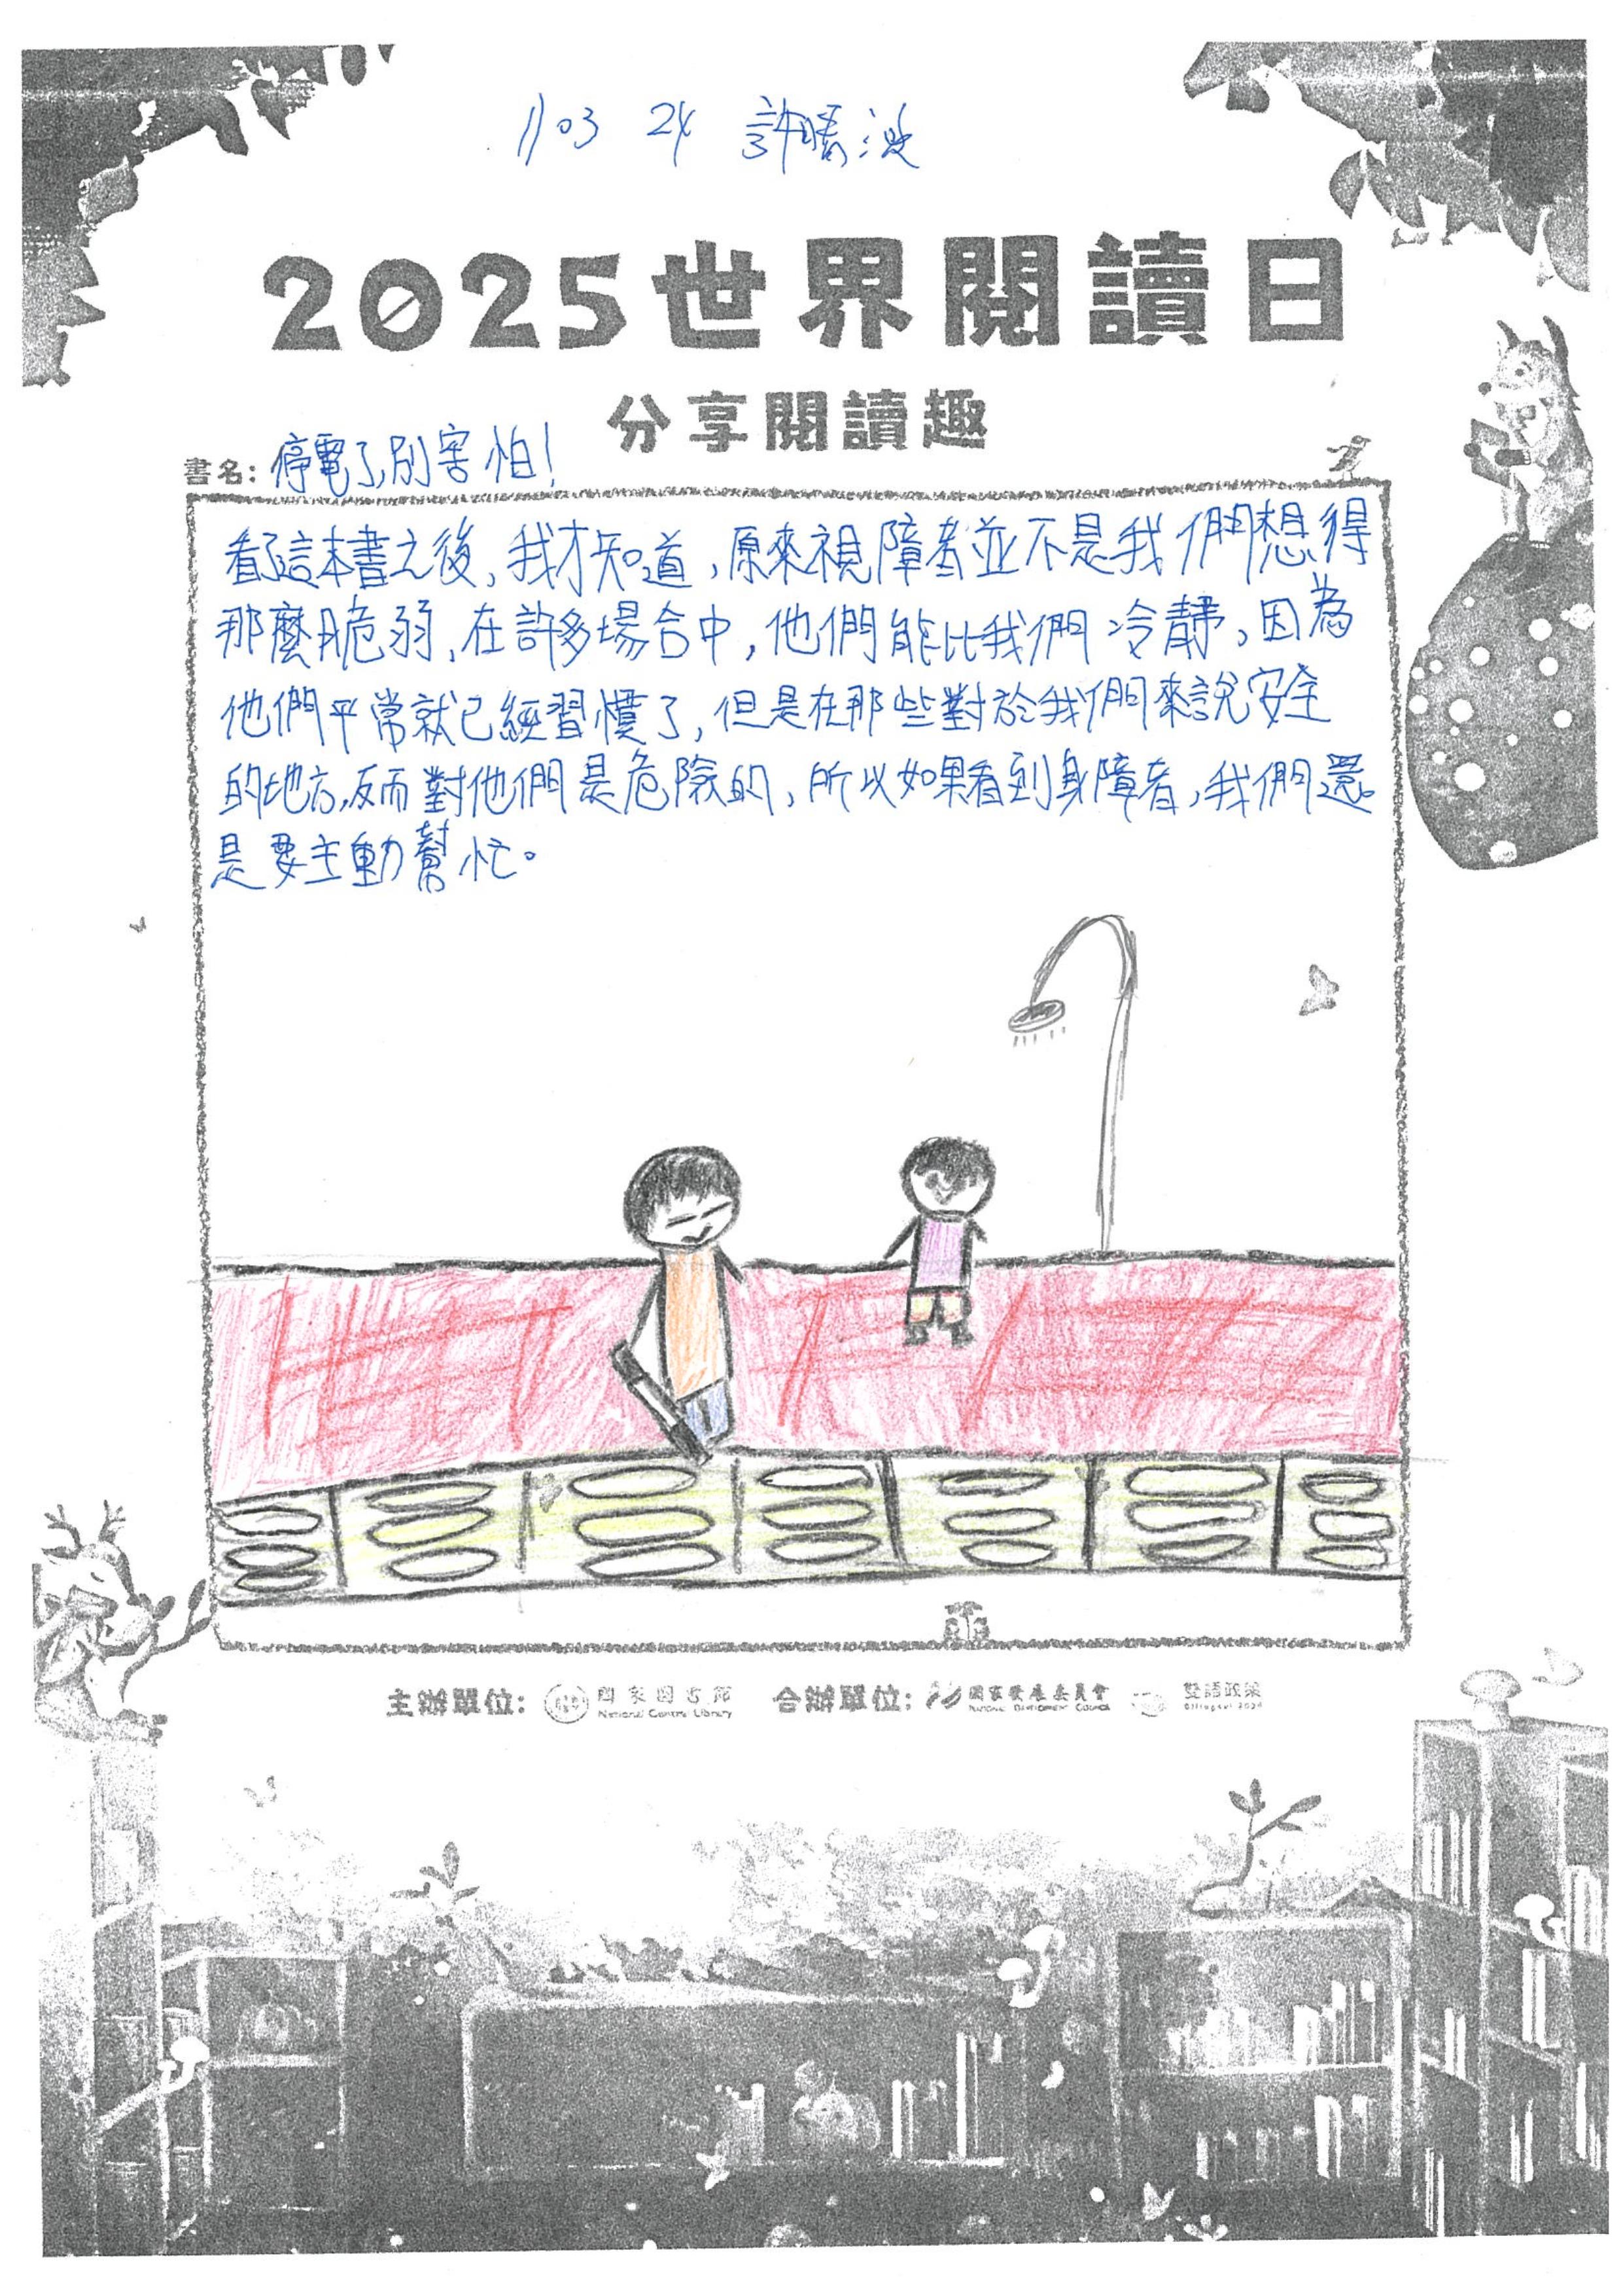 1103 24 許晴洢
2025世界閱讀日
分享閱讀趣
書名：停電了,別害怕!
看了這本書之後,我才知道,原來視障者並不是我們想得
那麼脆弱,在許多場合中,他們能比我們冷靜,因為
他們平常就已經習慣了,但是在那些對於我們來說安全
的地方,反而對他們是危險的,所以如果看到身障者,我們還
是要主動幫忙。
主辦單位： 國家圖書館 National Central Library 合辦單位： 國家發展委員會 National Development Council 雙語政策 Bilingual 2030